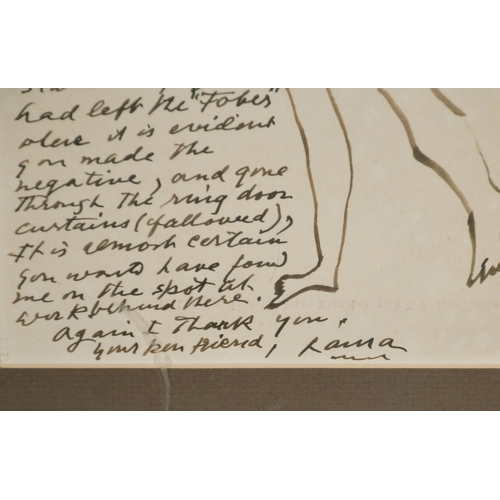 had left the "Tober"
where it is evident
you made the
negative, and gone
through the ring door
curtains (if allowed),
it is almost certain
you would have found
me on the spot at
work behind there.
Again I thank you,
Your pen friend, Laura